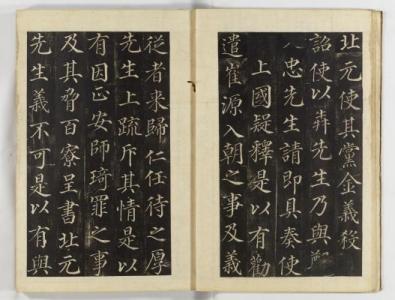 北元使其黨金義殺
詔使以奔先生乃與
忠先生請即具奏使
上國疑釋是以有勸
遣崔源入朝之事及義
從者来歸仁任待之厚
先生上疏斥其情是以
有因正安師琦罪之事
及其脅百寮呈書北元
先生義不可是以有與